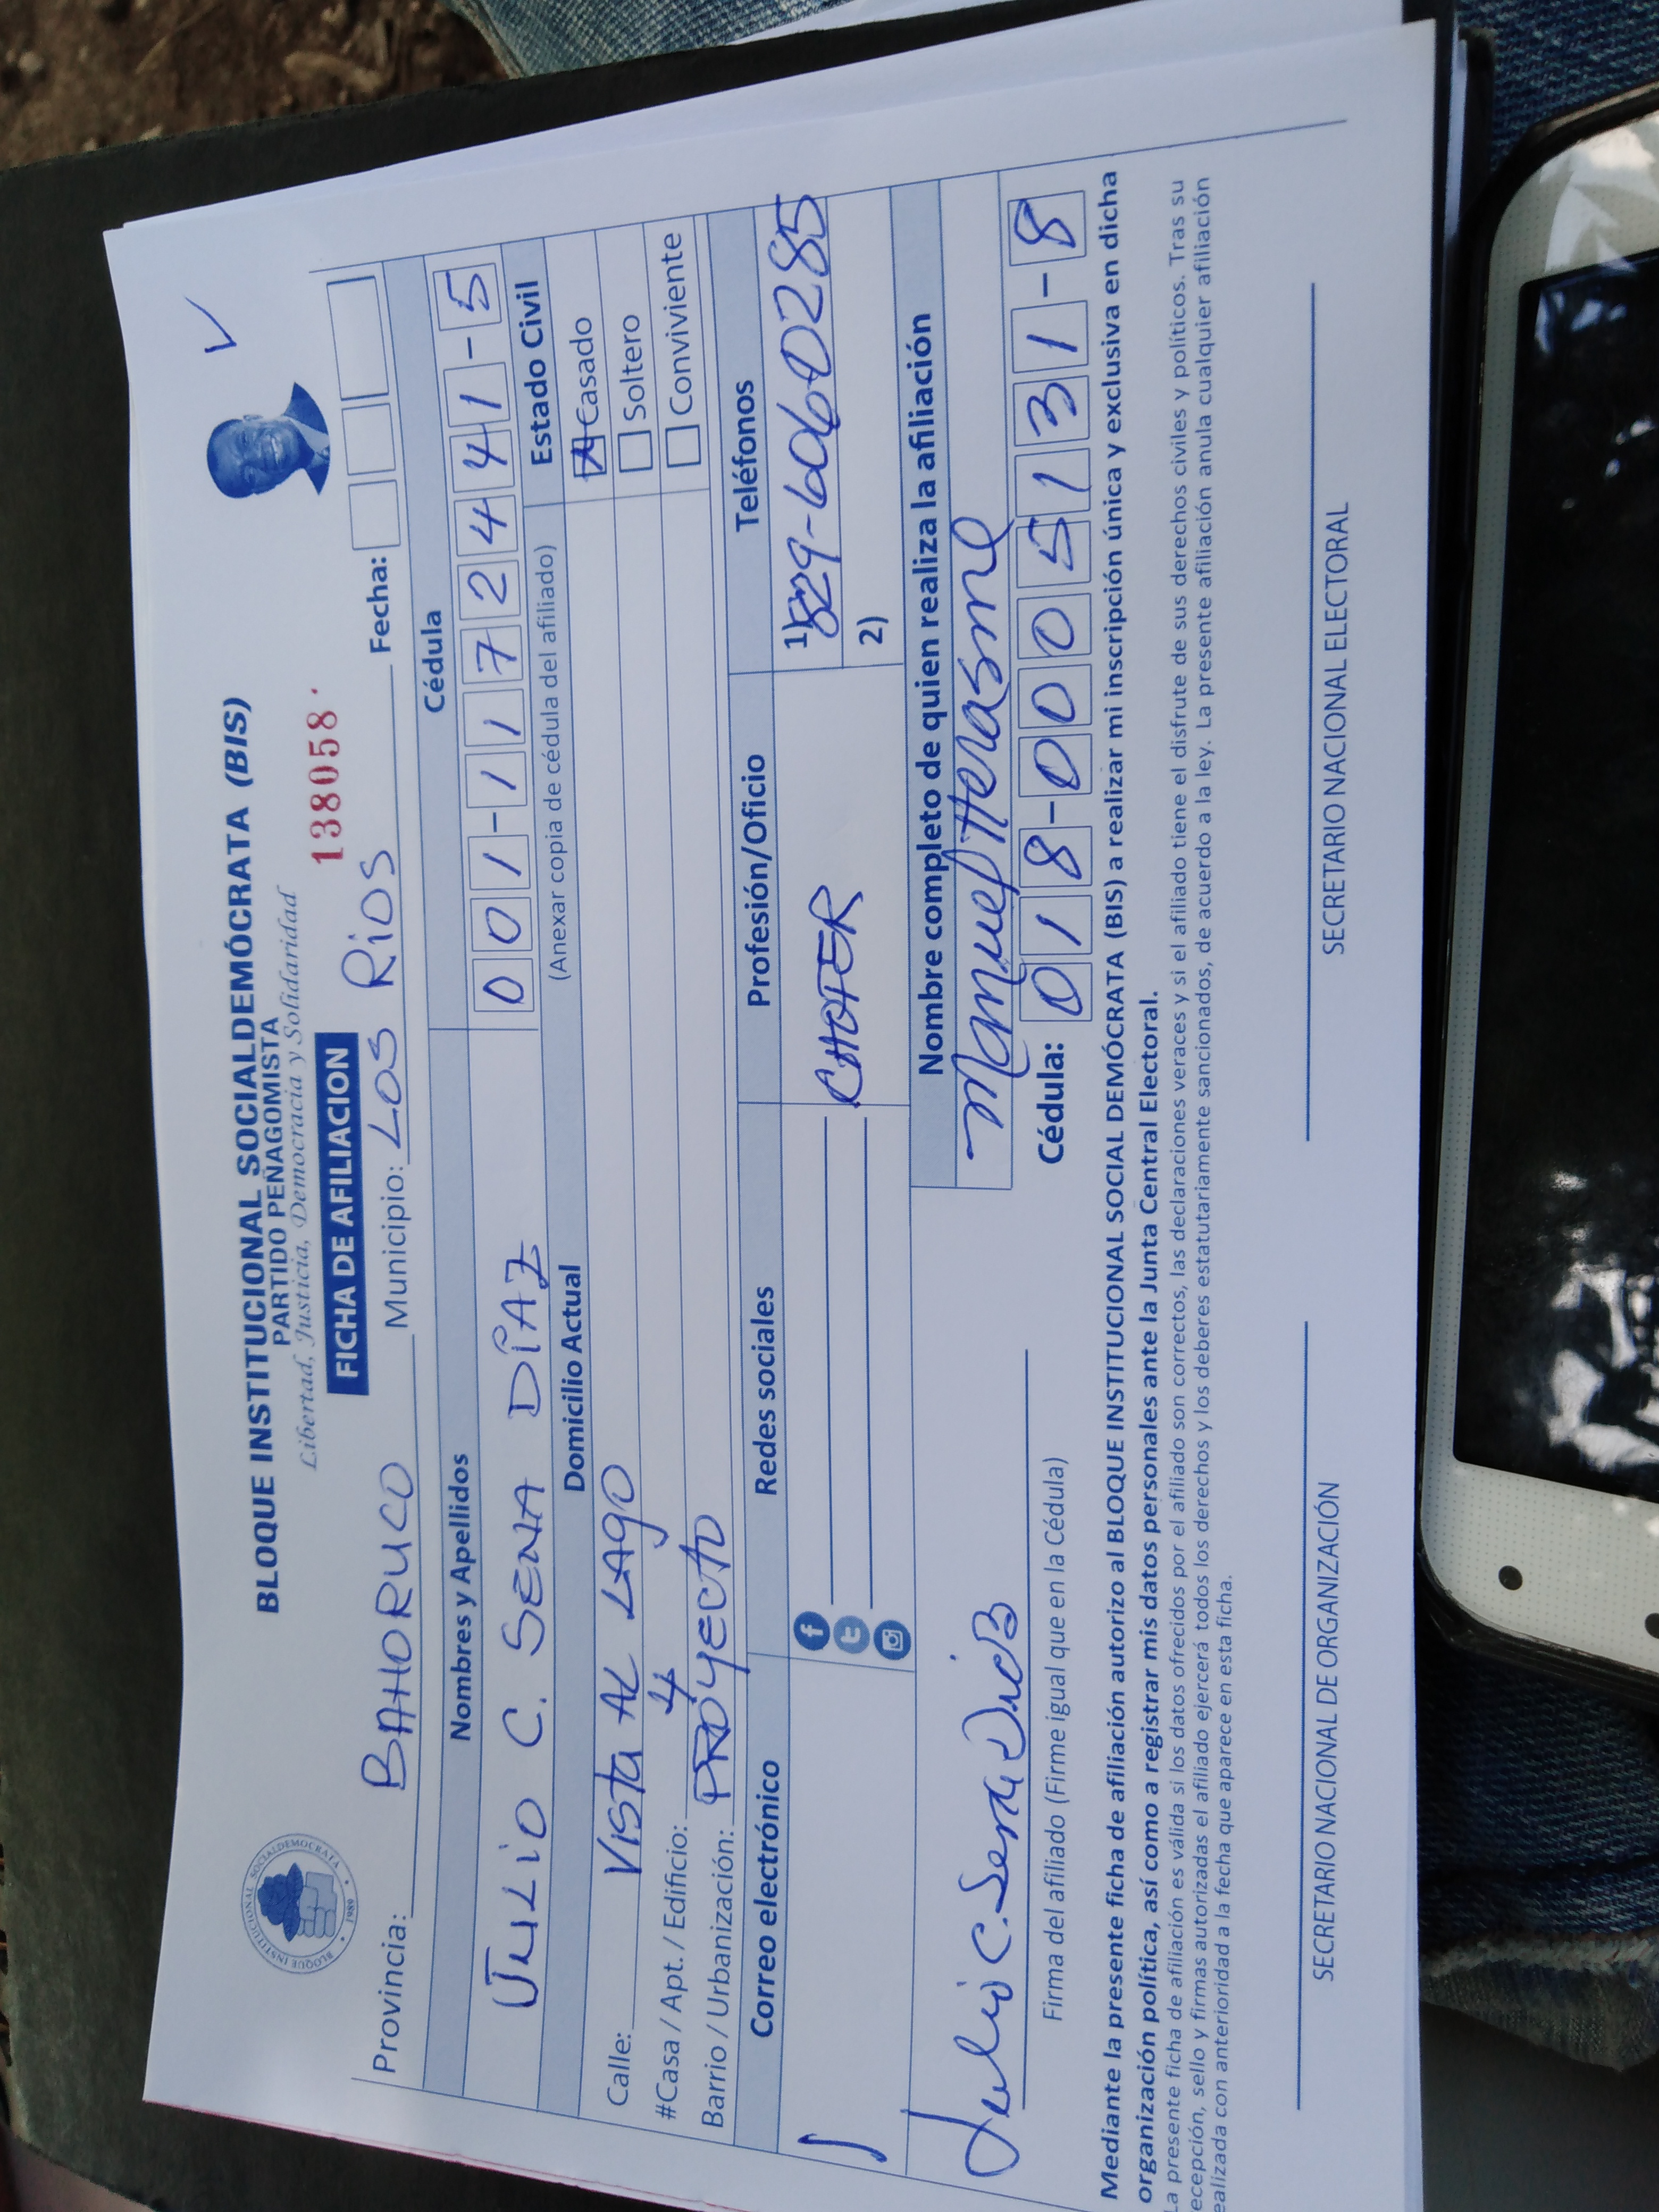 BLOQUE INSTITUCIONAL SOCIALDEMÓCRATA (BIS)
PARTIDO PEÑAGOMISTA
Libertad, Justicia, Democracia y Solidaridad
FICHA DE AFILIACION 138058
BLOQUE INSTITUCIONAL SOCIALDEMOCRATA 1989
Provincia: BAHORUCO Municipio: LOS RiOS Fecha:
Nombres y Apellidos Cédula
JULiO C. SENA DíAZ 001-1172441-5
Domicilio Actual (Anexar copia de cédula del afiliado) Estado Civil
Calle: VISTA AL LAGO
Casado
#Casa / Apt. / Edificio: 4
Soltero
Barrio / Urbanización: PROYECTO
Conviviente
Correo electrónico Redes sociales Profesión/Oficio Teléfonos
CHOFER
1) 829-6060285
2)
Nombre completo de quien realiza la afiliación
Julio C. Sena Díaz Manuel Herasme
Cédula: 018-0005131-8
Firma del afiliado (Firme igual que en la Cédula)
Mediante la presente ficha de afiliación autorizo al BLOQUE INSTITUCIONAL SOCIAL DEMÓCRATA (BIS) a realizar mi inscripción única y exclusiva en dicha
organización política, así como a registrar mis datos personales ante la Junta Central Electoral.
La presente ficha de afiliación es válida si los datos ofrecidos por el afiliado son correctos, las declaraciones veraces y si el afiliado tiene el disfrute de sus derechos civiles y políticos. Tras su
recepción, sello y firmas autorizadas el afiliado ejercerá todos los derechos y los deberes estatutariamente sancionados, de acuerdo a la ley. La presente afiliación anula cualquier afiliación
realizada con anterioridad a la fecha que aparece en esta ficha.
SECRETARIO NACIONAL DE ORGANIZACIÓN SECRETARIO NACIONAL ELECTORAL